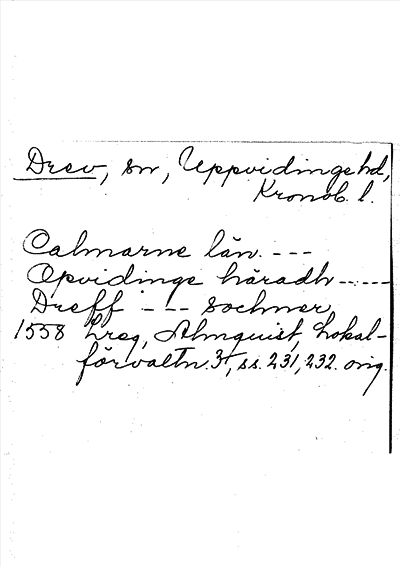 Drev, sn, Uppvidinge hd,
Kronob. l.
Calmarne län. ---
Opvidinge häradh -----
Dreff --- sochner
1558 Lreg, Almquist, Lokal-
förvaltn. 3, ss. 231, 232. orig.